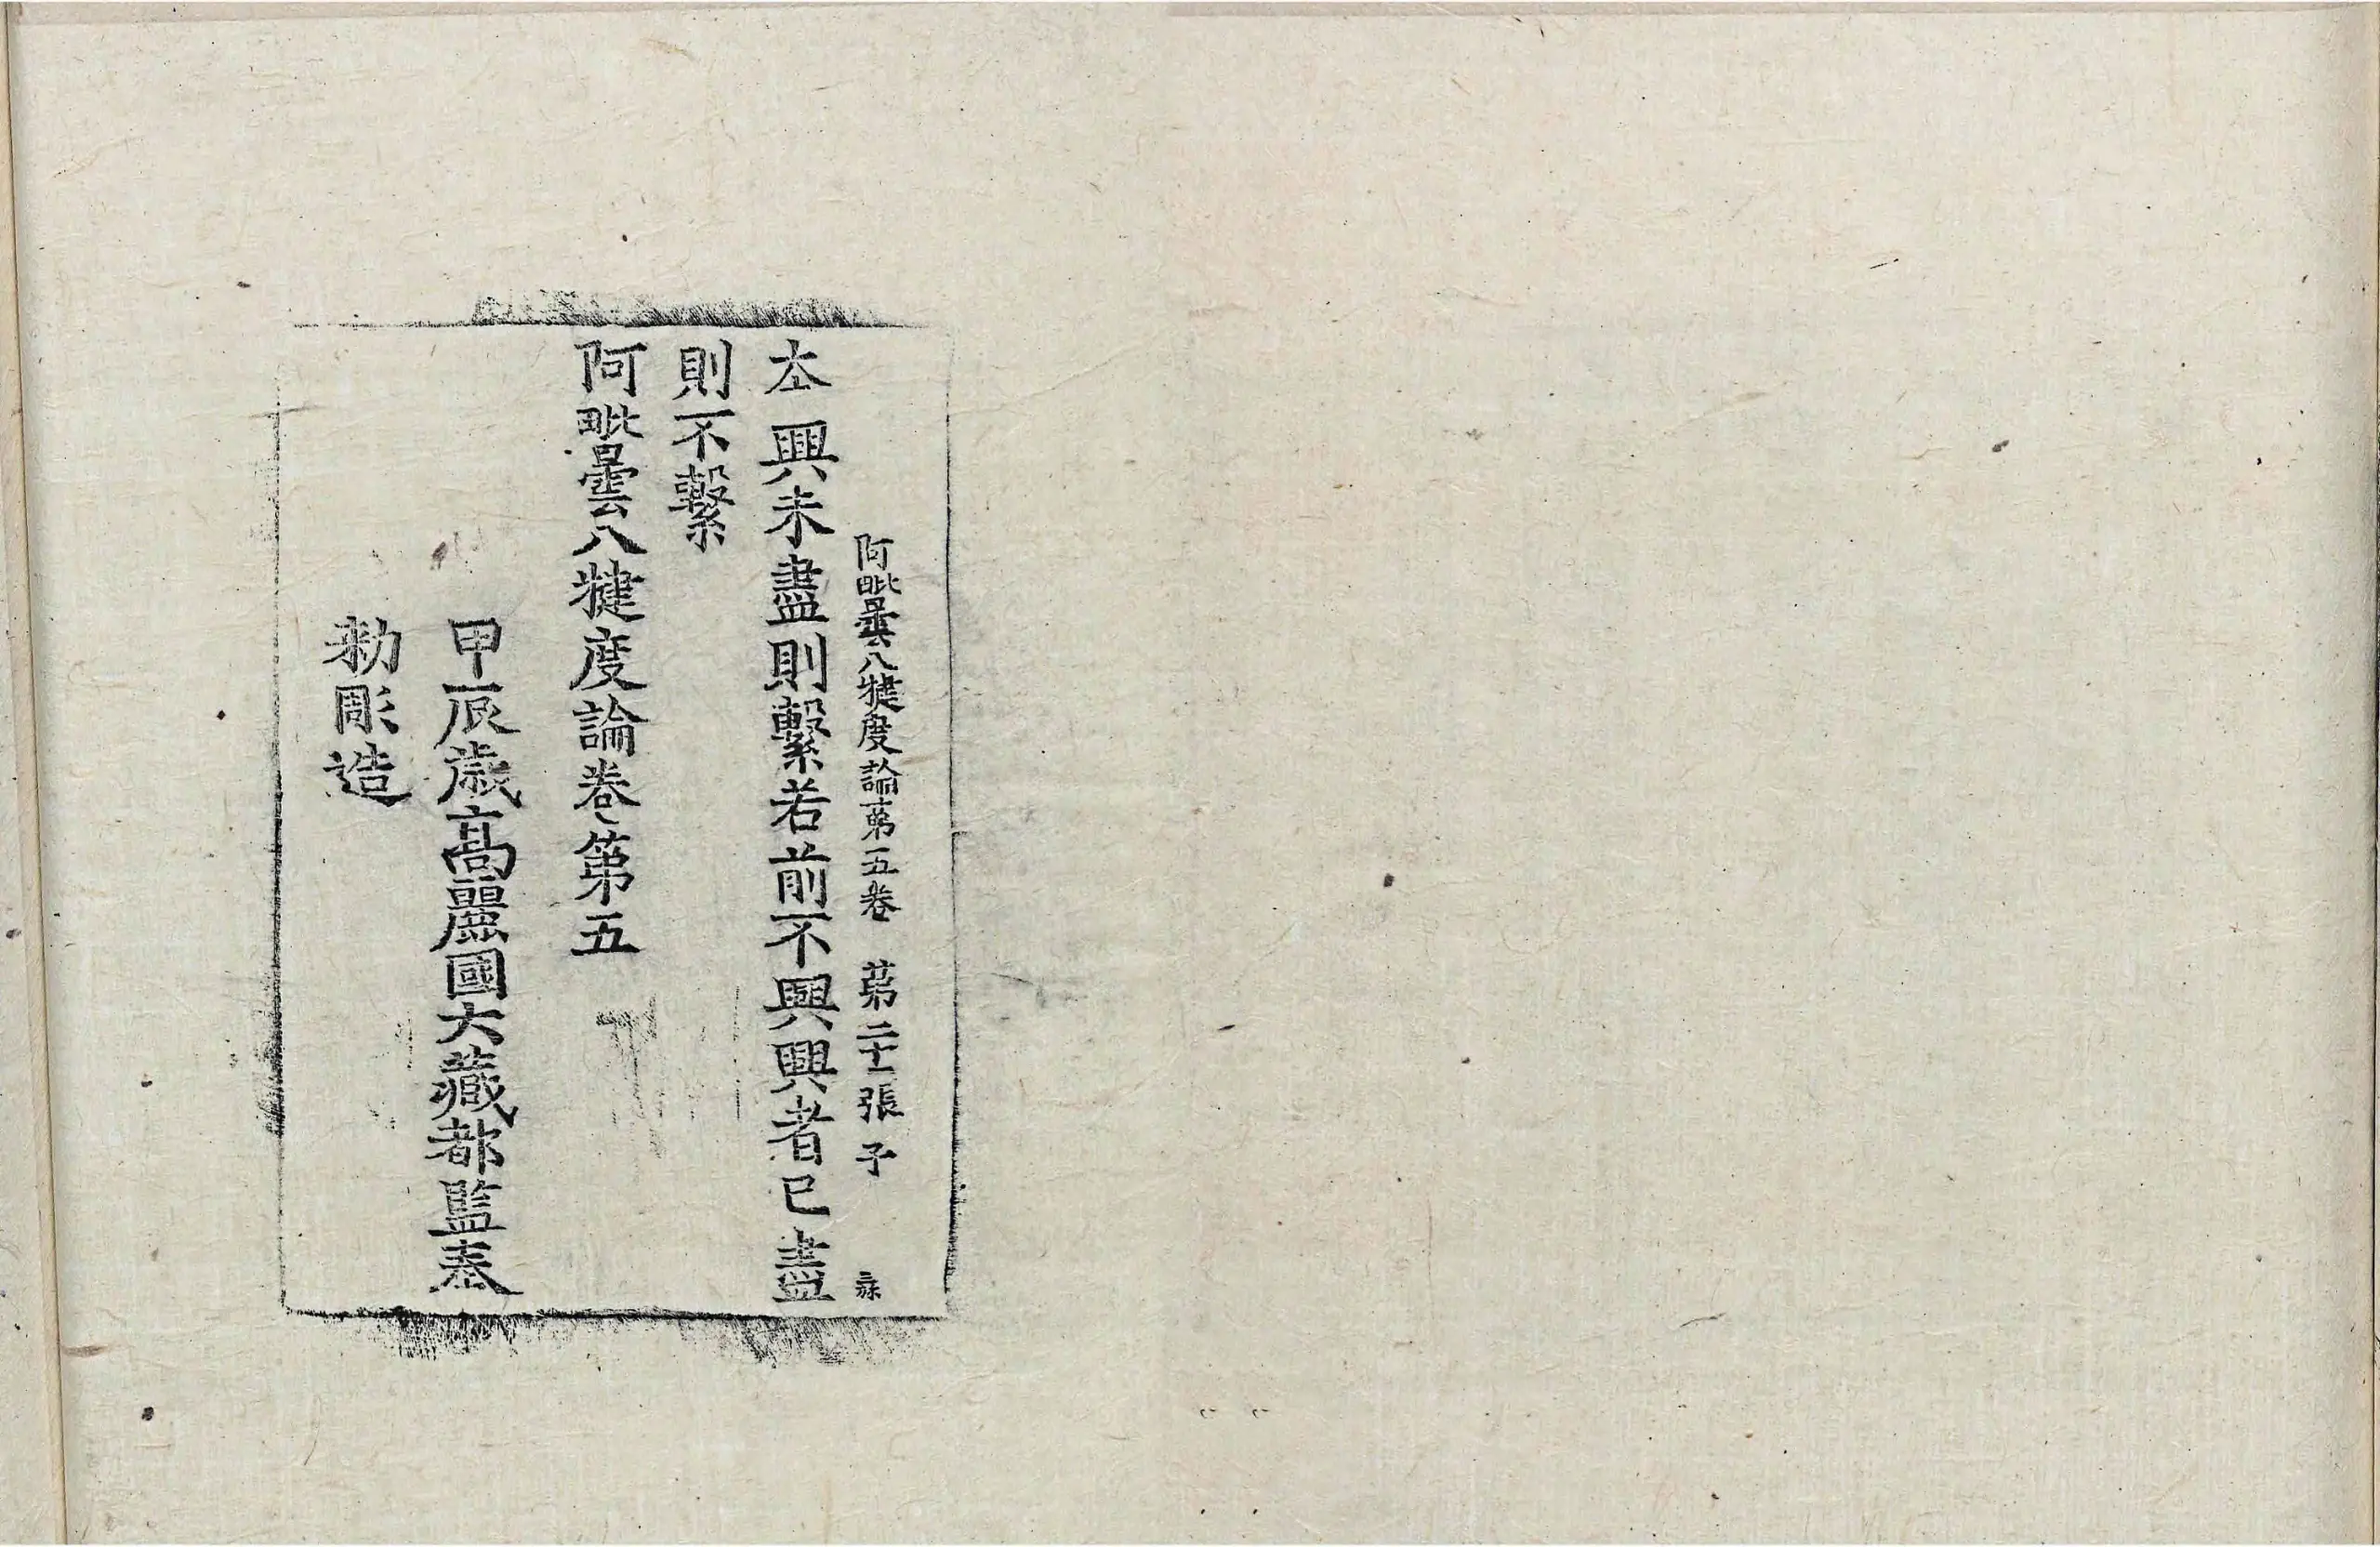 阿毗曇八犍度論第五卷　第二十一張　子
本興未盡則繫若前不興興者已盡
則不繫
阿毗曇八犍度論卷第五
甲辰歲高麗國大藏都監奉
勅彫造